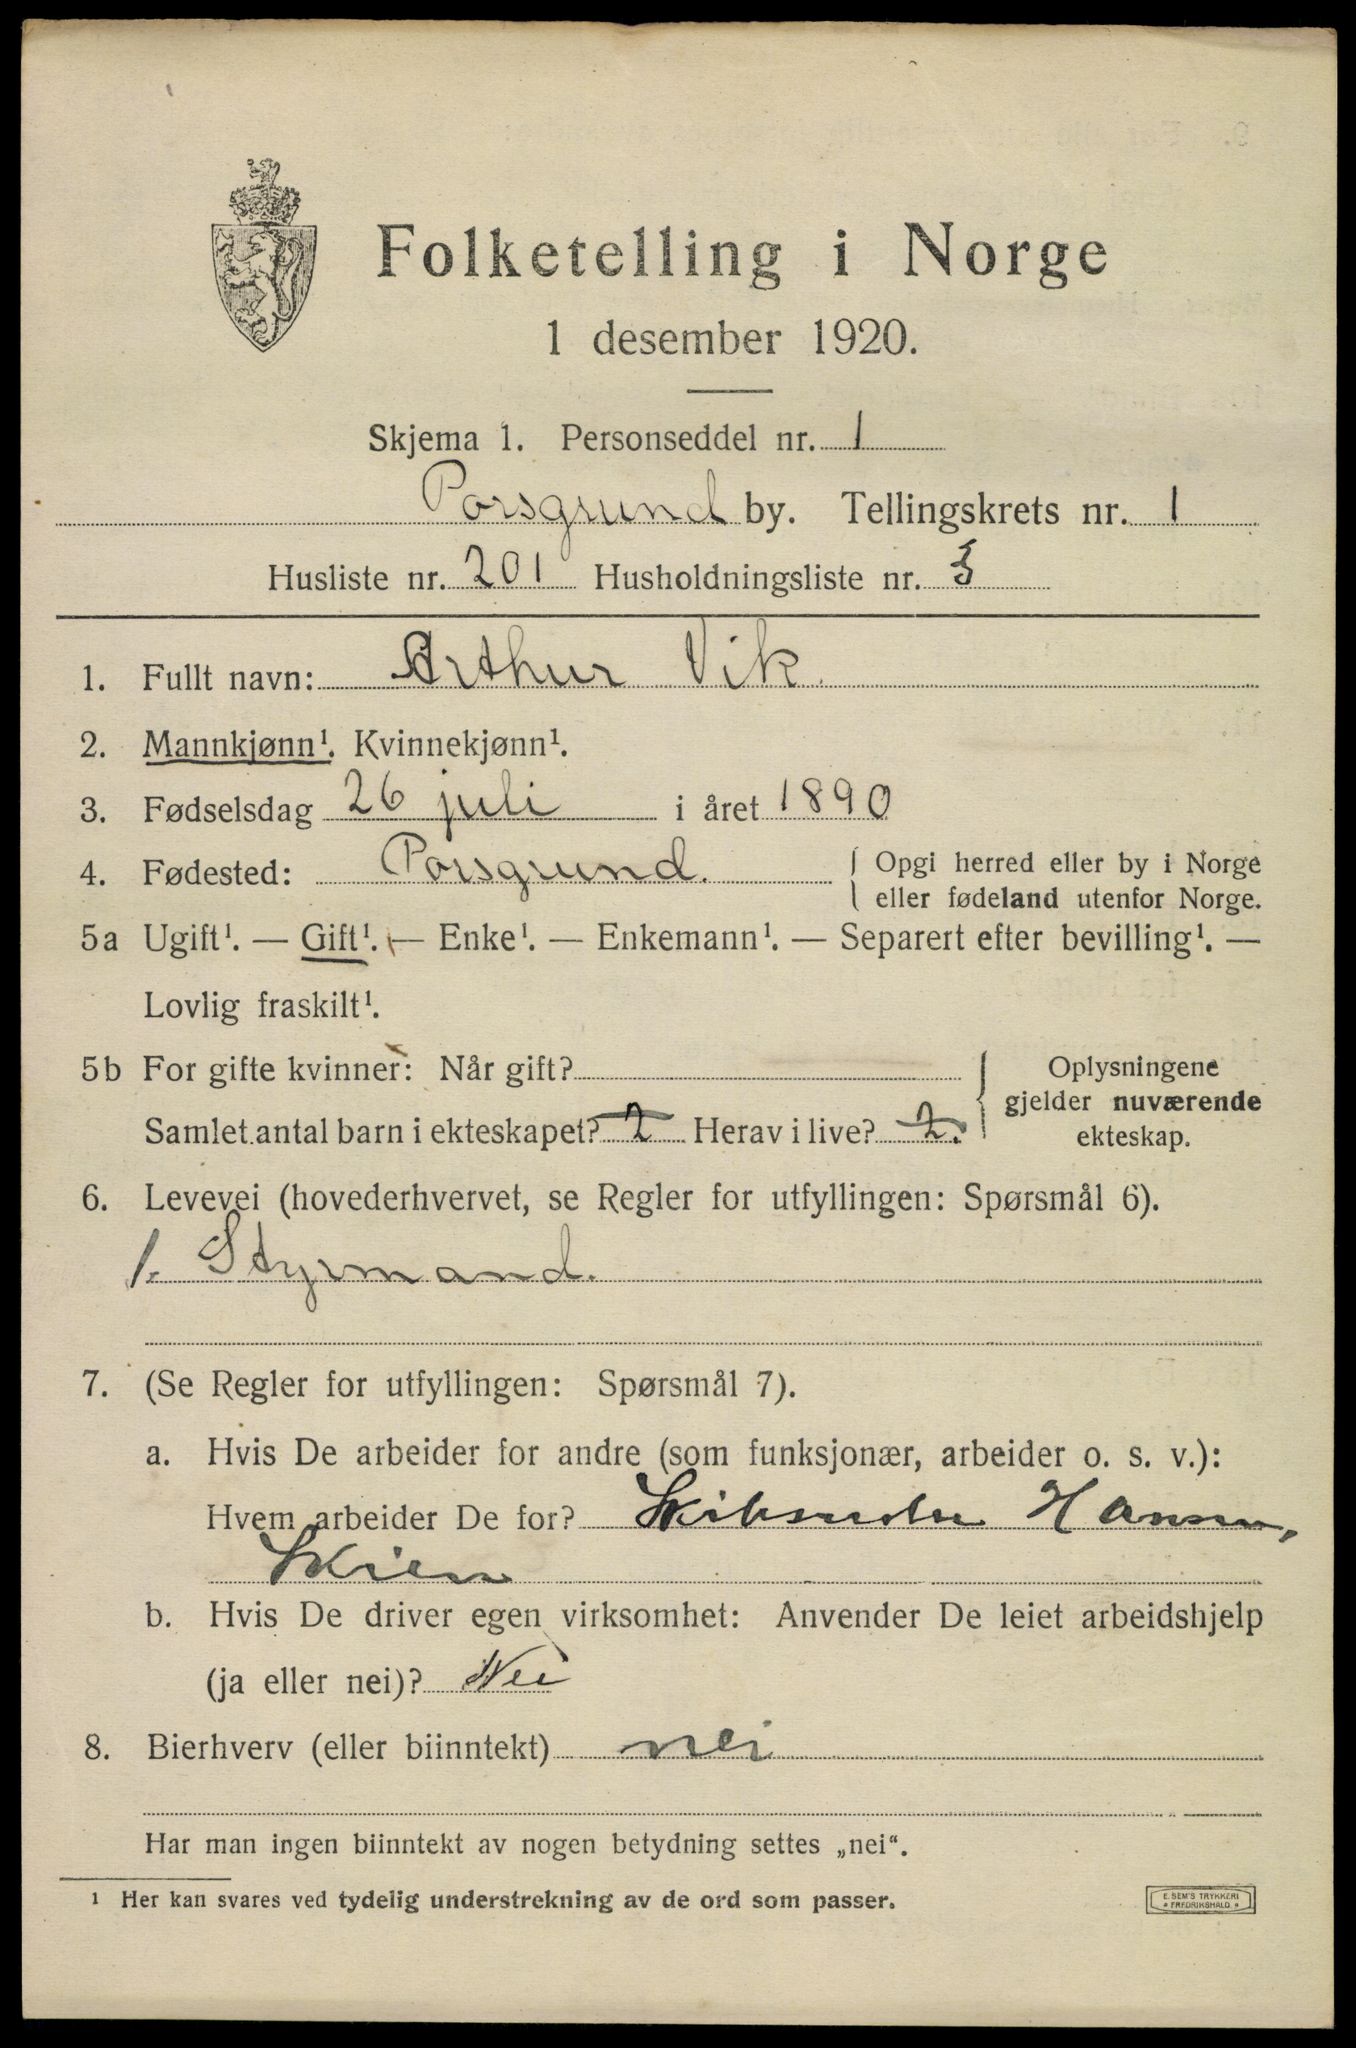 Folketelling i Norge
1 desember 1920.
Skjema 1. Personseddel nr. 1
Porsgrund by. Tellingskrets nr. 1
Husliste nr. 201 Husholdningsliste nr. 3
1. Fullt navn: Arthur Vik
2. Mannkjønn¹. Kvinnekjønn¹.
3. Fødselsdag 26 juli i året 1890
4. Fødested: Porsgrund. { Opgi herred eller by i Norge
eller fødeland utenfor Norge.
5a Ugift¹. — Gift¹. — Enke¹. — Enkemann¹. — Separert efter bevilling¹. —
Lovlig fraskilt¹.
5b For gifte kvinner: Når gift? { Oplysningene
gjelder nuværende
Samlet antal barn i ekteskapet? 2 Herav i live? 2.
ekteskap.
6. Levevei (hovederhvervet, se Regler for utfyllingen: Spørsmål 6).
1. Styrmand.
7. (Se Regler for utfyllingen: Spørsmål 7).
a. Hvis De arbeider for andre (som funksjonær, arbeider o. s. v.):
Hvem arbeider De for? Skibsreder Hansen,
Skien
b. Hvis De driver egen virksomhet: Anvender De leiet arbeidshjelp
(ja eller nei)? Nei
8. Bierhverv (eller biinntekt) nei
Har man ingen biinntekt av nogen betydning settes „nei“.
¹ Her kan svares ved tydelig understrekning av de ord som passer.
E. SEM'S TRYKKERI
* FREDRIKSHALD *